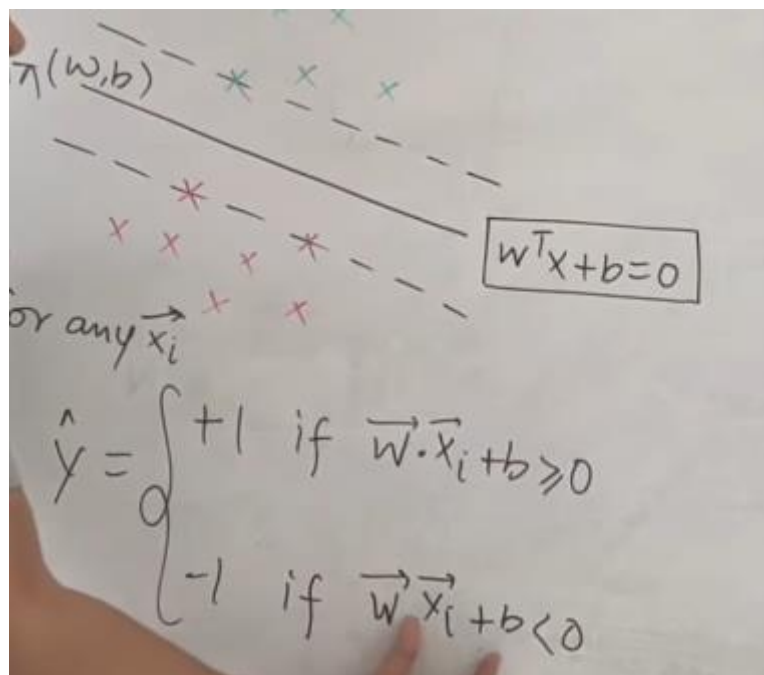 π(w,b)
wᵀx+b=0
or any x⃗ᵢ
ŷ = { +1 if w⃗·x⃗ᵢ+b⩾0
-1 if w⃗ x⃗ᵢ+b<0